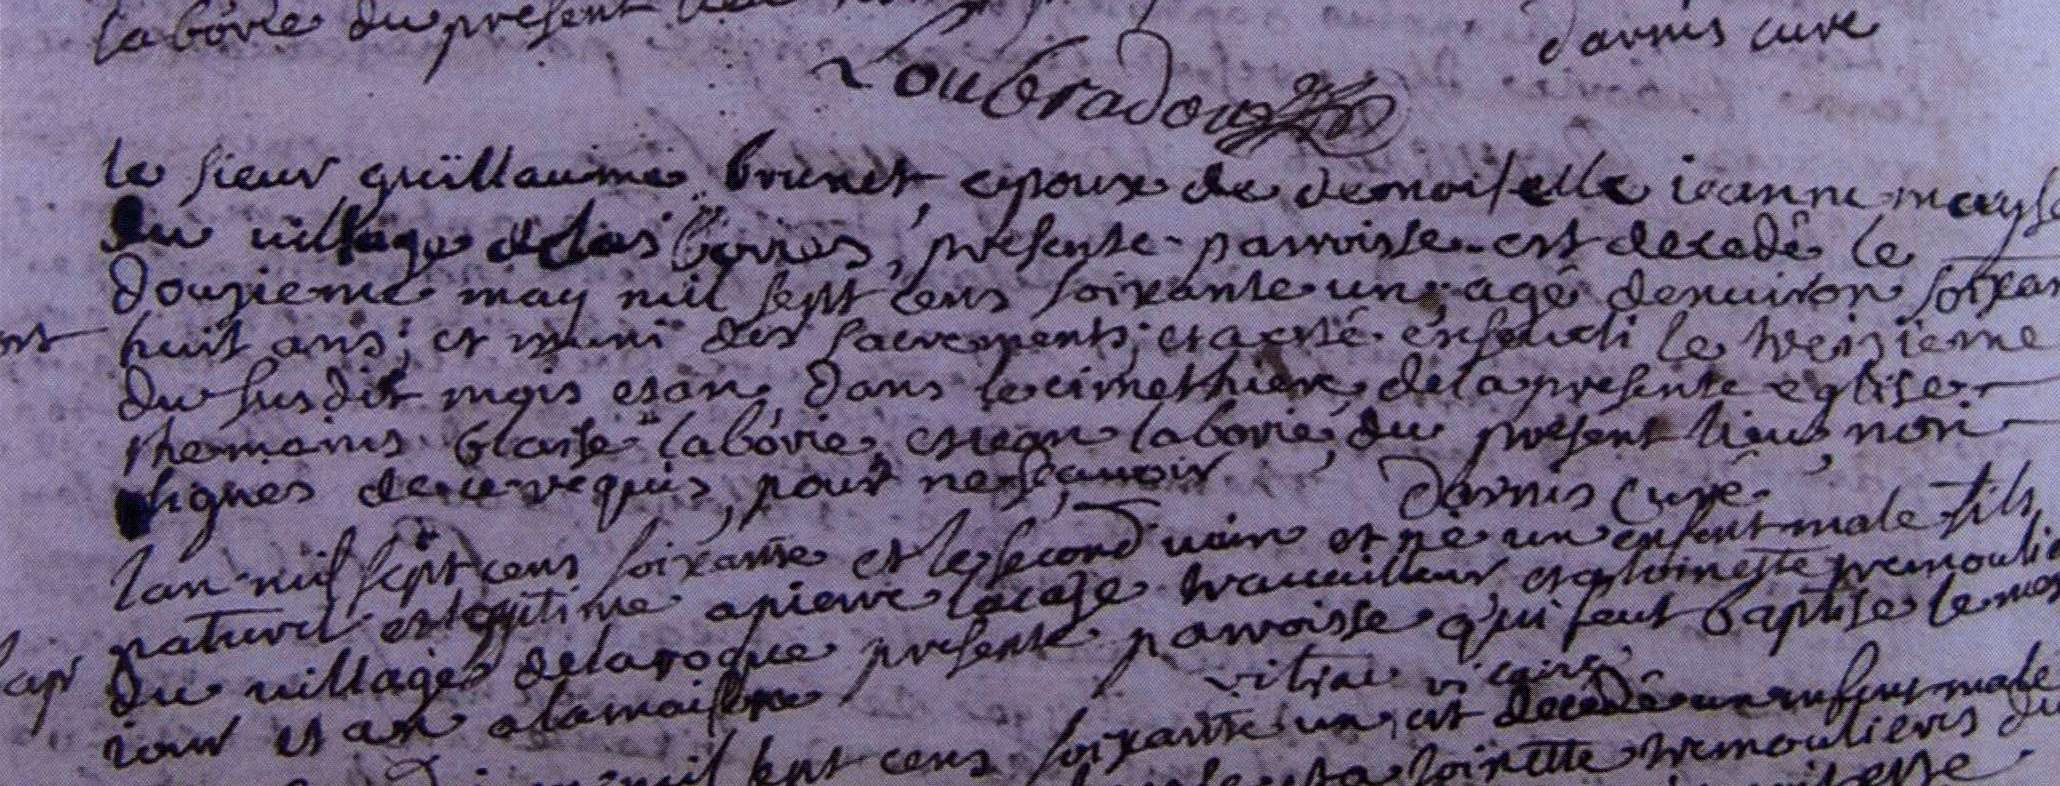 laborie du present
darnis curé
Loubradou
le sieur guillaume brunet epoux de demoiselle ieanne mayse
du village de las bories, presente parroisse est decedé le
douzieme may mil sept cens soixante un, agé denuiron soixan
nt huit ans, et muni des sacrements, et a esté enseueli le treizieme
du susdit mois et an dans le cimethiere de la presente eglise
themoins blaise laborie et iean laborie du present lieu non
signes de ce requis, pour ne scauoir darnis curé
lan mil sept cens soixante et le second uin et né un enfent male fils
naturel et legitime a pierre lacaze trauailleur et a toinette tremoulie
bap du uillage de laroque presente parroisse qui feut baptise le mes
iour et an a la maison vitrac vicaire
mil sept cens soixante un est decedé un enfent male
toinette tremoulieres du